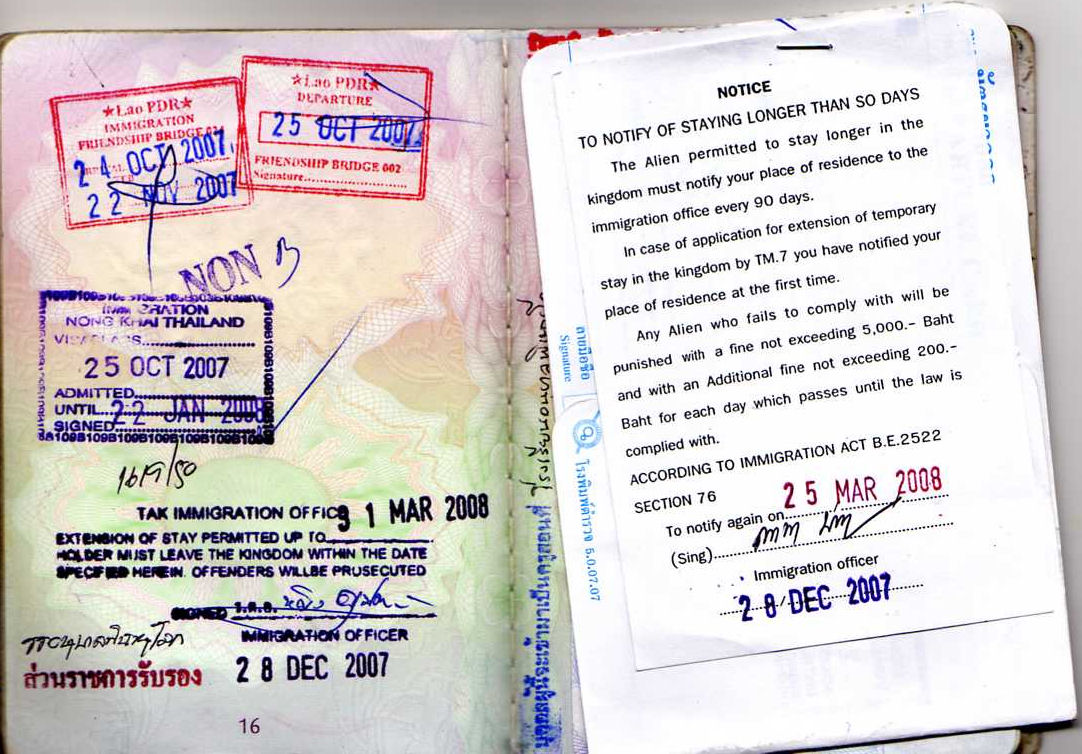 ★Lao PDR★
IMMIGRATION
FRIENDSHIP BRIDGE
24 OCT 2007
22 NOV 2007
★Lao PDR★
DEPARTURE
25 OCT 2007
FRIENDSHIP BRIDGE 002
Signature
NON B
NONG KHAI THAILAND
25 OCT 2007
ADMITTED
UNTIL 22 JAN 2008
SIGNED
TAK IMMIGRATION OFFICE
31 MAR 2008
EXTENSION OF STAY PERMITTED UP TO
HOLDER MUST LEAVE THE KINGDOM WITHIN THE DATE
SPECIFIED HEREIN. OFFENDERS WILLBE PRUSECUTED
SIGNED
IMMIGRATION OFFICER
ส่วนราชการรับรอง
28 DEC 2007
16
ลายมือชื่อ
Signature
NOTICE
TO NOTIFY OF STAYING LONGER THAN SO DAYS
The Alien permitted to stay longer in the
kingdom must notify your place of residence to the
immigration office every 90 days.
In case of application for extension of temporary
stay in the kingdom by TM.7 you have notified your
place of residence at the first time.
Any Alien who fails to comply with will be
punished with a fine not exceeding 5,000.- Baht
and with an Additional fine not exceeding 200.-
Baht for each day which passes until the law is
complied with.
ACCORDING TO IMMIGRATION ACT B.E.2522
SECTION 76
25 MAR 2008
To notify again on
(Sing)
Immigration officer
28 DEC 2007